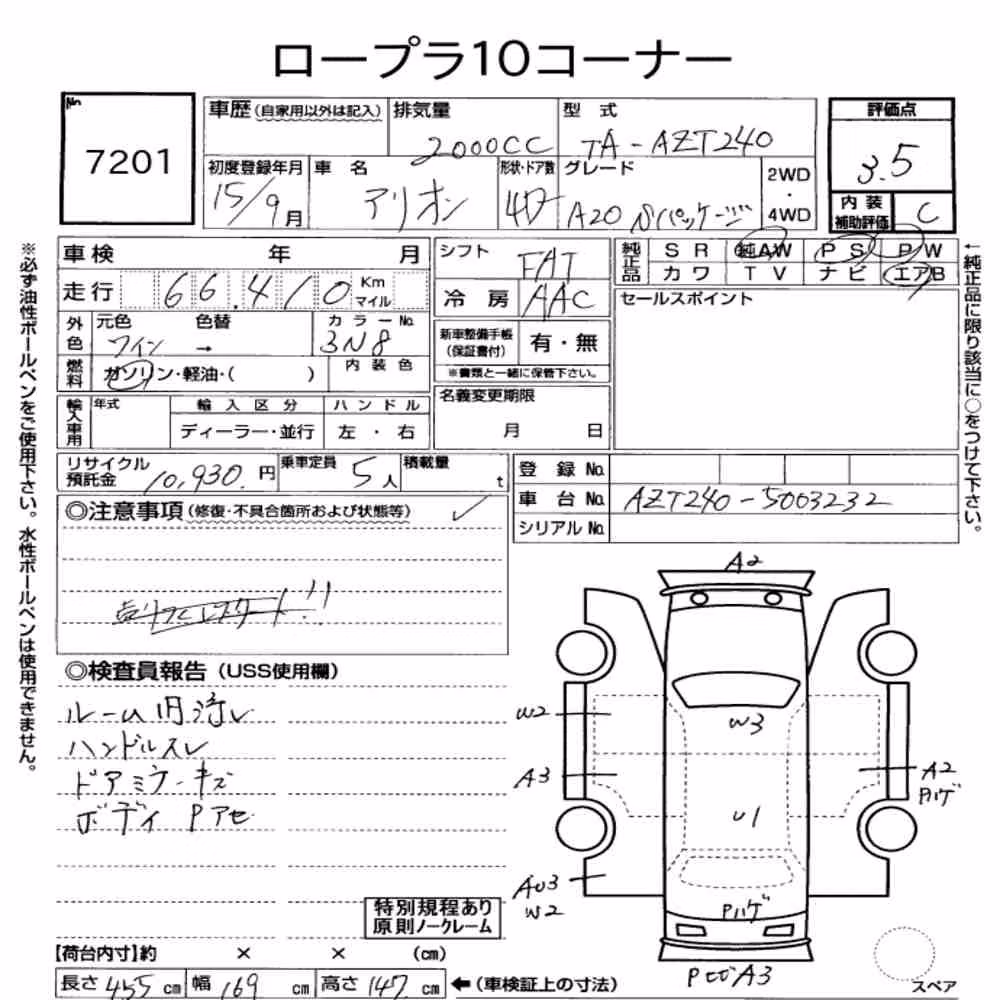 ロープラ10コーナー
No. 7201
車歴(自家用以外は記入) 排気量 2000CC 型式 TA-AZT240
初度登録年月 15/9月 車名 アリオン 形状・ドア数 4D グレード A20 Sパッケージ 2WD・4WD
評価点 3.5
内装補助評価 C
車検 年 月
走行 66.410 Km マイル
シフト FAT
冷房 AAC
純正品 SR 純AW PS PW
カワ TV ナビ エアB
セールスポイント
外色 元色 ワイン 色替 → カラーNo. 3N8
燃料 ガソリン・軽油・( ) 内装色
新車整備手帳(保証書付) 有・無
※書類と一緒に保管下さい。
輸入車用 年式 輸入区分 ハンドル
ディーラー・並行 左・右
名義変更期限
月 日
リサイクル預託金 10,930.円 乗車定員 5人 積載量 t
登録No.
車台No. AZT240-5003232
シリアルNo.
◎注意事項(修復・不具合箇所および状態等)
売切てレスタート!!
◎検査員報告(USS使用欄)
ルーム内汚レ
ハンドルスレ
ドアミラーキズ
ボディ Pアセ
特別規程あり
原則ノークレーム
【荷台内寸】約 × × (cm)
長さ 455 cm 幅 169 cm 高さ 147 cm ←(車検証上の寸法)
A2
W2
W3
A3
A2
Pハゲ
U1
AU3
W2
Pハゲ
PセガA3
スペア
※必ず油性ボールペンをご使用下さい。水性ボールペンは使用できません。
←純正品に限り該当に○をつけて下さい。